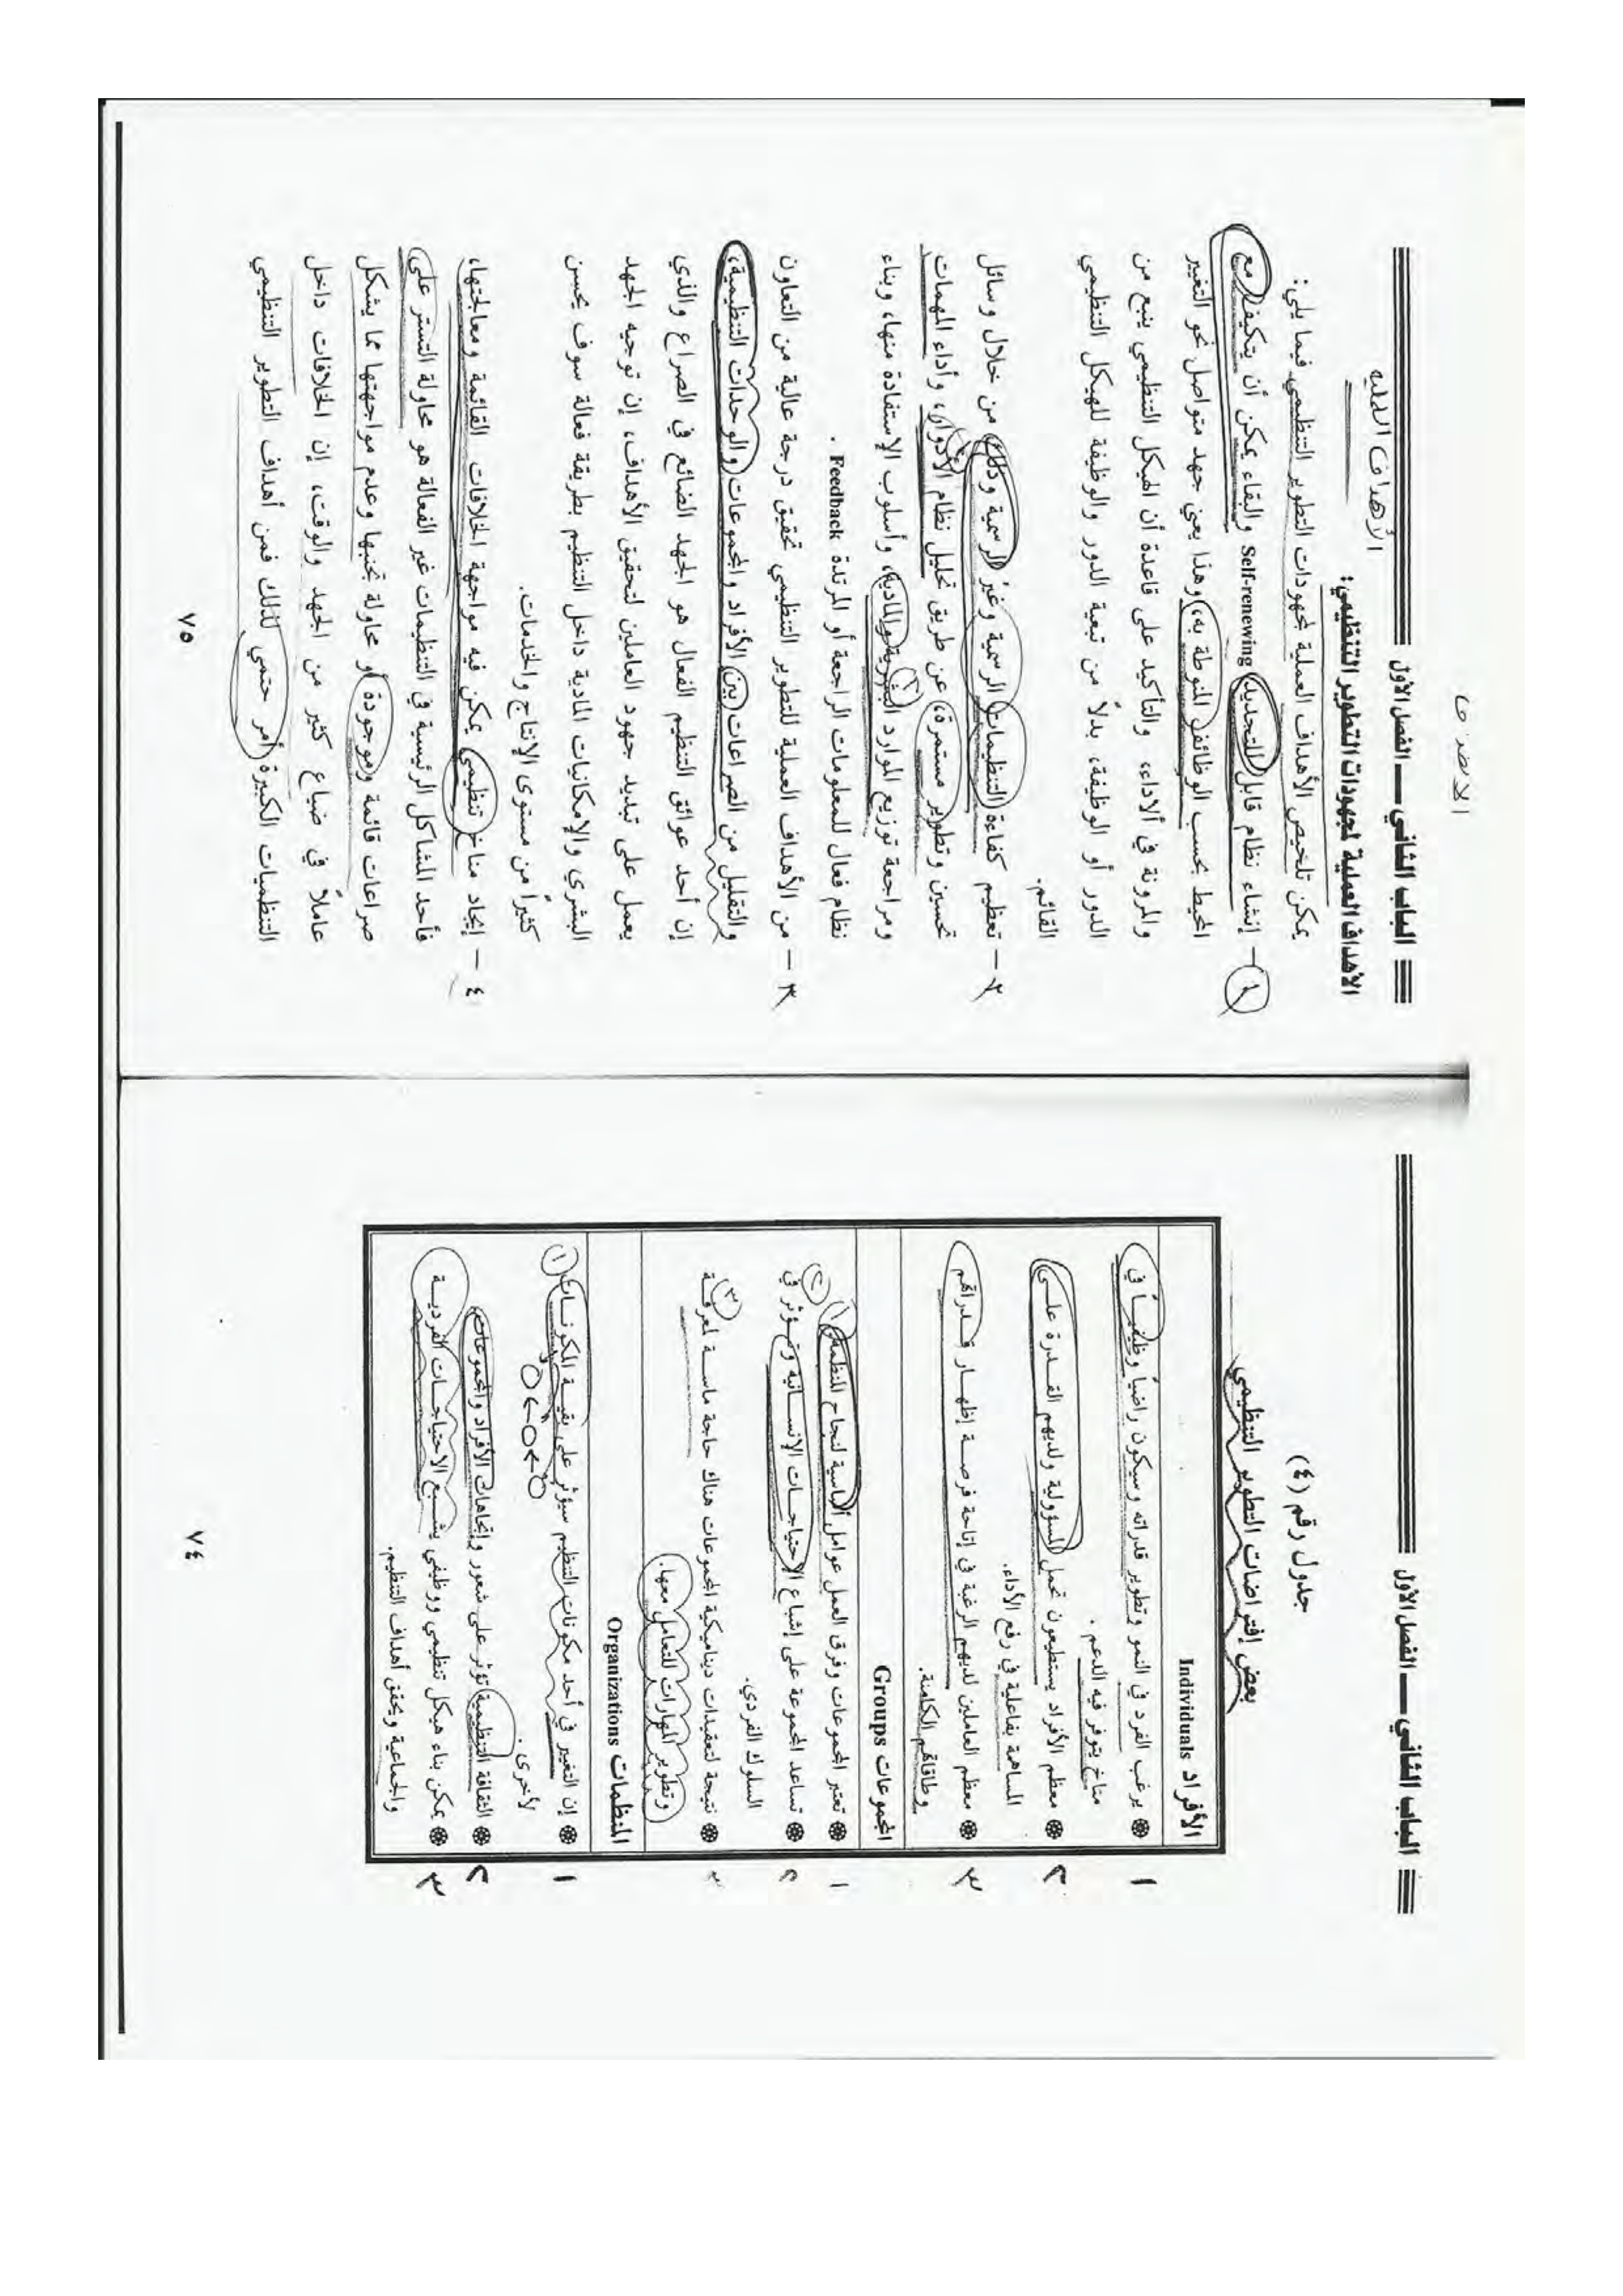 الباب الثاني ــ الفصل الأول
جدول رقم (٤)
بعض إفتراضات التطوير التنظيمي
الأفراد Individuals
١ ❁ يرغب الفرد في النمو وتطوير قدراته وسيكون راضياً وظيفياً في
مناخ يتوفر فيه الدعم .
٢ ❁ معظم الأفراد يستطيعون تحمل المسؤولية ولديهم القدرة على
المساهمة بفاعلية في رفع الأداء.
٣ ❁ معظم العاملين لديهم الرغبة في إتاحة فرصة إظهار قدراتهم
وطاقاتهم الكامنة.
المجموعات Groups
١ ❁ تعتبر المجموعات وفرق العمل عوامل أساسية لنجاح المنظمة. ١
٢ ❁ تساعد المجموعة على إشباع الاحتياجات الإنسانية وتؤثر في ٢
السلوك الفردي.
٣ ❁ نتيجة لتعقيدات ديناميكية المجموعات هناك حاجة ماسة لمعرفة ٣
وتطوير المهارات للتعامل معها.
المنظمات Organizations
١ ❁ إن التغيير في أحد مكونات التنظيم سيؤثر على بقية المكونات ١
لأخرى .
٢ ❁ الثقافة التنظيمية تؤثر على شعور وإتجاهات الأفراد والمجموعات.
٣ ❁ يمكن بناء هيكل تنظيمي ووظيفي يشبع الاحتياجات الفردية
والجماعية ويحقق أهداف التنظيم.
٧٤
الباب الثاني ــ الفصل الأول
الأهداف العملية
الأهداف العملية لمجهودات التطوير التنظيمي:
يمكن تلخيص الأهداف العملية لمجهودات التطوير التنظيمي فيما يلي:
١ – إنشاء نظام قابل للتجديد Self-renewing والبقاء يمكن أن يتكيف مع
المحيط بحسب الوظائف المنوطة به، وهذا يعني جهد متواصل نحو التغيير
والمرونة في الأداء، والتأكيد على قاعدة أن الهيكل التنظيمي ينبع من
الدور أو الوظيفة، بدلاً من تبعية الدور والوظيفة للهيكل التنظيمي
القائم.
٢ – تعظيم كفاءة التنظيمات الرسمية وغير الرسمية وذلك من خلال وسائل
تحسين وتطوير مستمرة، عن طريق تحليل نظام الأدوار، وأداء المهمات
ومراجعة توزيع الموارد البشرية والمادية، وأسلوب الإستفادة منها، وبناء
نظام فعال للمعلومات الراجعة أو المرتدة Feedback .
٣ – من الأهداف العملية للتطوير التنظيمي تحقيق درجة عالية من التعاون
والتقليل من الصراعات بين الأفراد والمجموعات والوحدات التنظيمية،
إن أحد عوائق التنظيم الفعال هو الجهد الضائع في الصراع والذي
يعمل على تبديد جهود العاملين لتحقيق الأهداف، إن توجيه الجهد
البشري والإمكانيات المادية داخل التنظيم بطريقة فعالة سوف يحسن
كثيراً من مستوى الإنتاج والخدمات.
٤ – إيجاد مناخ تنظيمي يمكن فيه مواجهة الخلافات القائمة ومعالجتها،
فأحد المشاكل الرئيسية في التنظيمات غير الفعالة هو محاولة التستر على
صراعات قائمة وموجودة أو محاولة تجنبها وعدم مواجهتها مما يشكل
عاملاً في ضياع كثير من الجهد والوقت، إن الخلافات داخل
التنظميات الكبيرة أمر حتمي لذلك فمن أهداف التطوير التنظيمي
٧٥